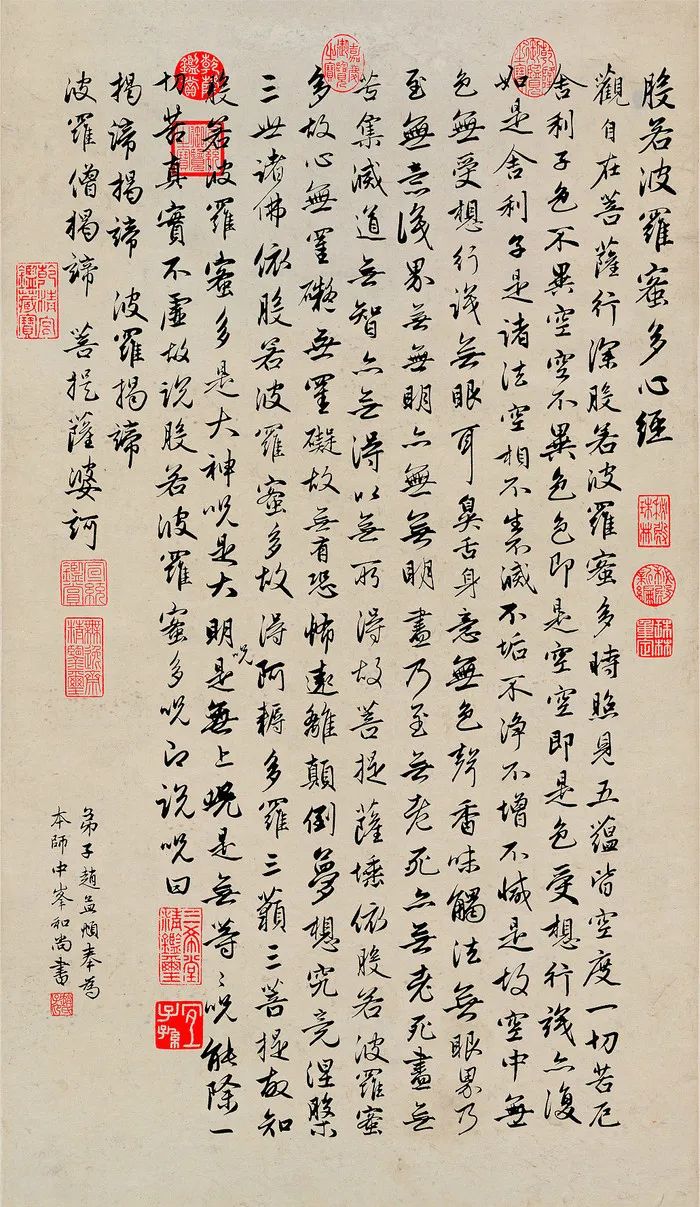 般若波羅蜜多心經
觀自在菩薩行深般若波羅蜜多時照見五蘊皆空度一切苦厄
舍利子色不異空空不異色色即是空空即是色受想行識亦復
如是舍利子是諸法空相不生不滅不垢不淨不增不減是故空中無
色無受想行識無眼耳鼻舌身意無色聲香味觸法無眼界乃
至無意識界無無明亦無無明盡乃至無老死亦無老死盡無
苦集滅道無智亦無得以無所得故菩提薩埵依般若波羅蜜
多故心無罣礙無罣礙故無有恐怖遠離顛倒夢想究竟涅槃
三世諸佛依般若波羅蜜多故得阿耨多羅三藐三菩提故知
般若波羅蜜多是大神呪是大明呪是無上呪是無等〻呪能除一
切苦真實不虛故說般若波羅蜜多呪即說呪曰
揭諦揭諦 波羅揭諦
波羅僧揭諦 菩提薩婆訶
弟子趙孟頫奉為
本師中峯和尚書
乾隆御覽之寶
嘉慶御覽之寶
乾隆鑑賞
秘殿珠林
秘殿新編
珠林重定
乾清宮鑑藏寶
宣統鑑賞
無逸齋精鑒璽
三希堂精鑑璽
宜子孫